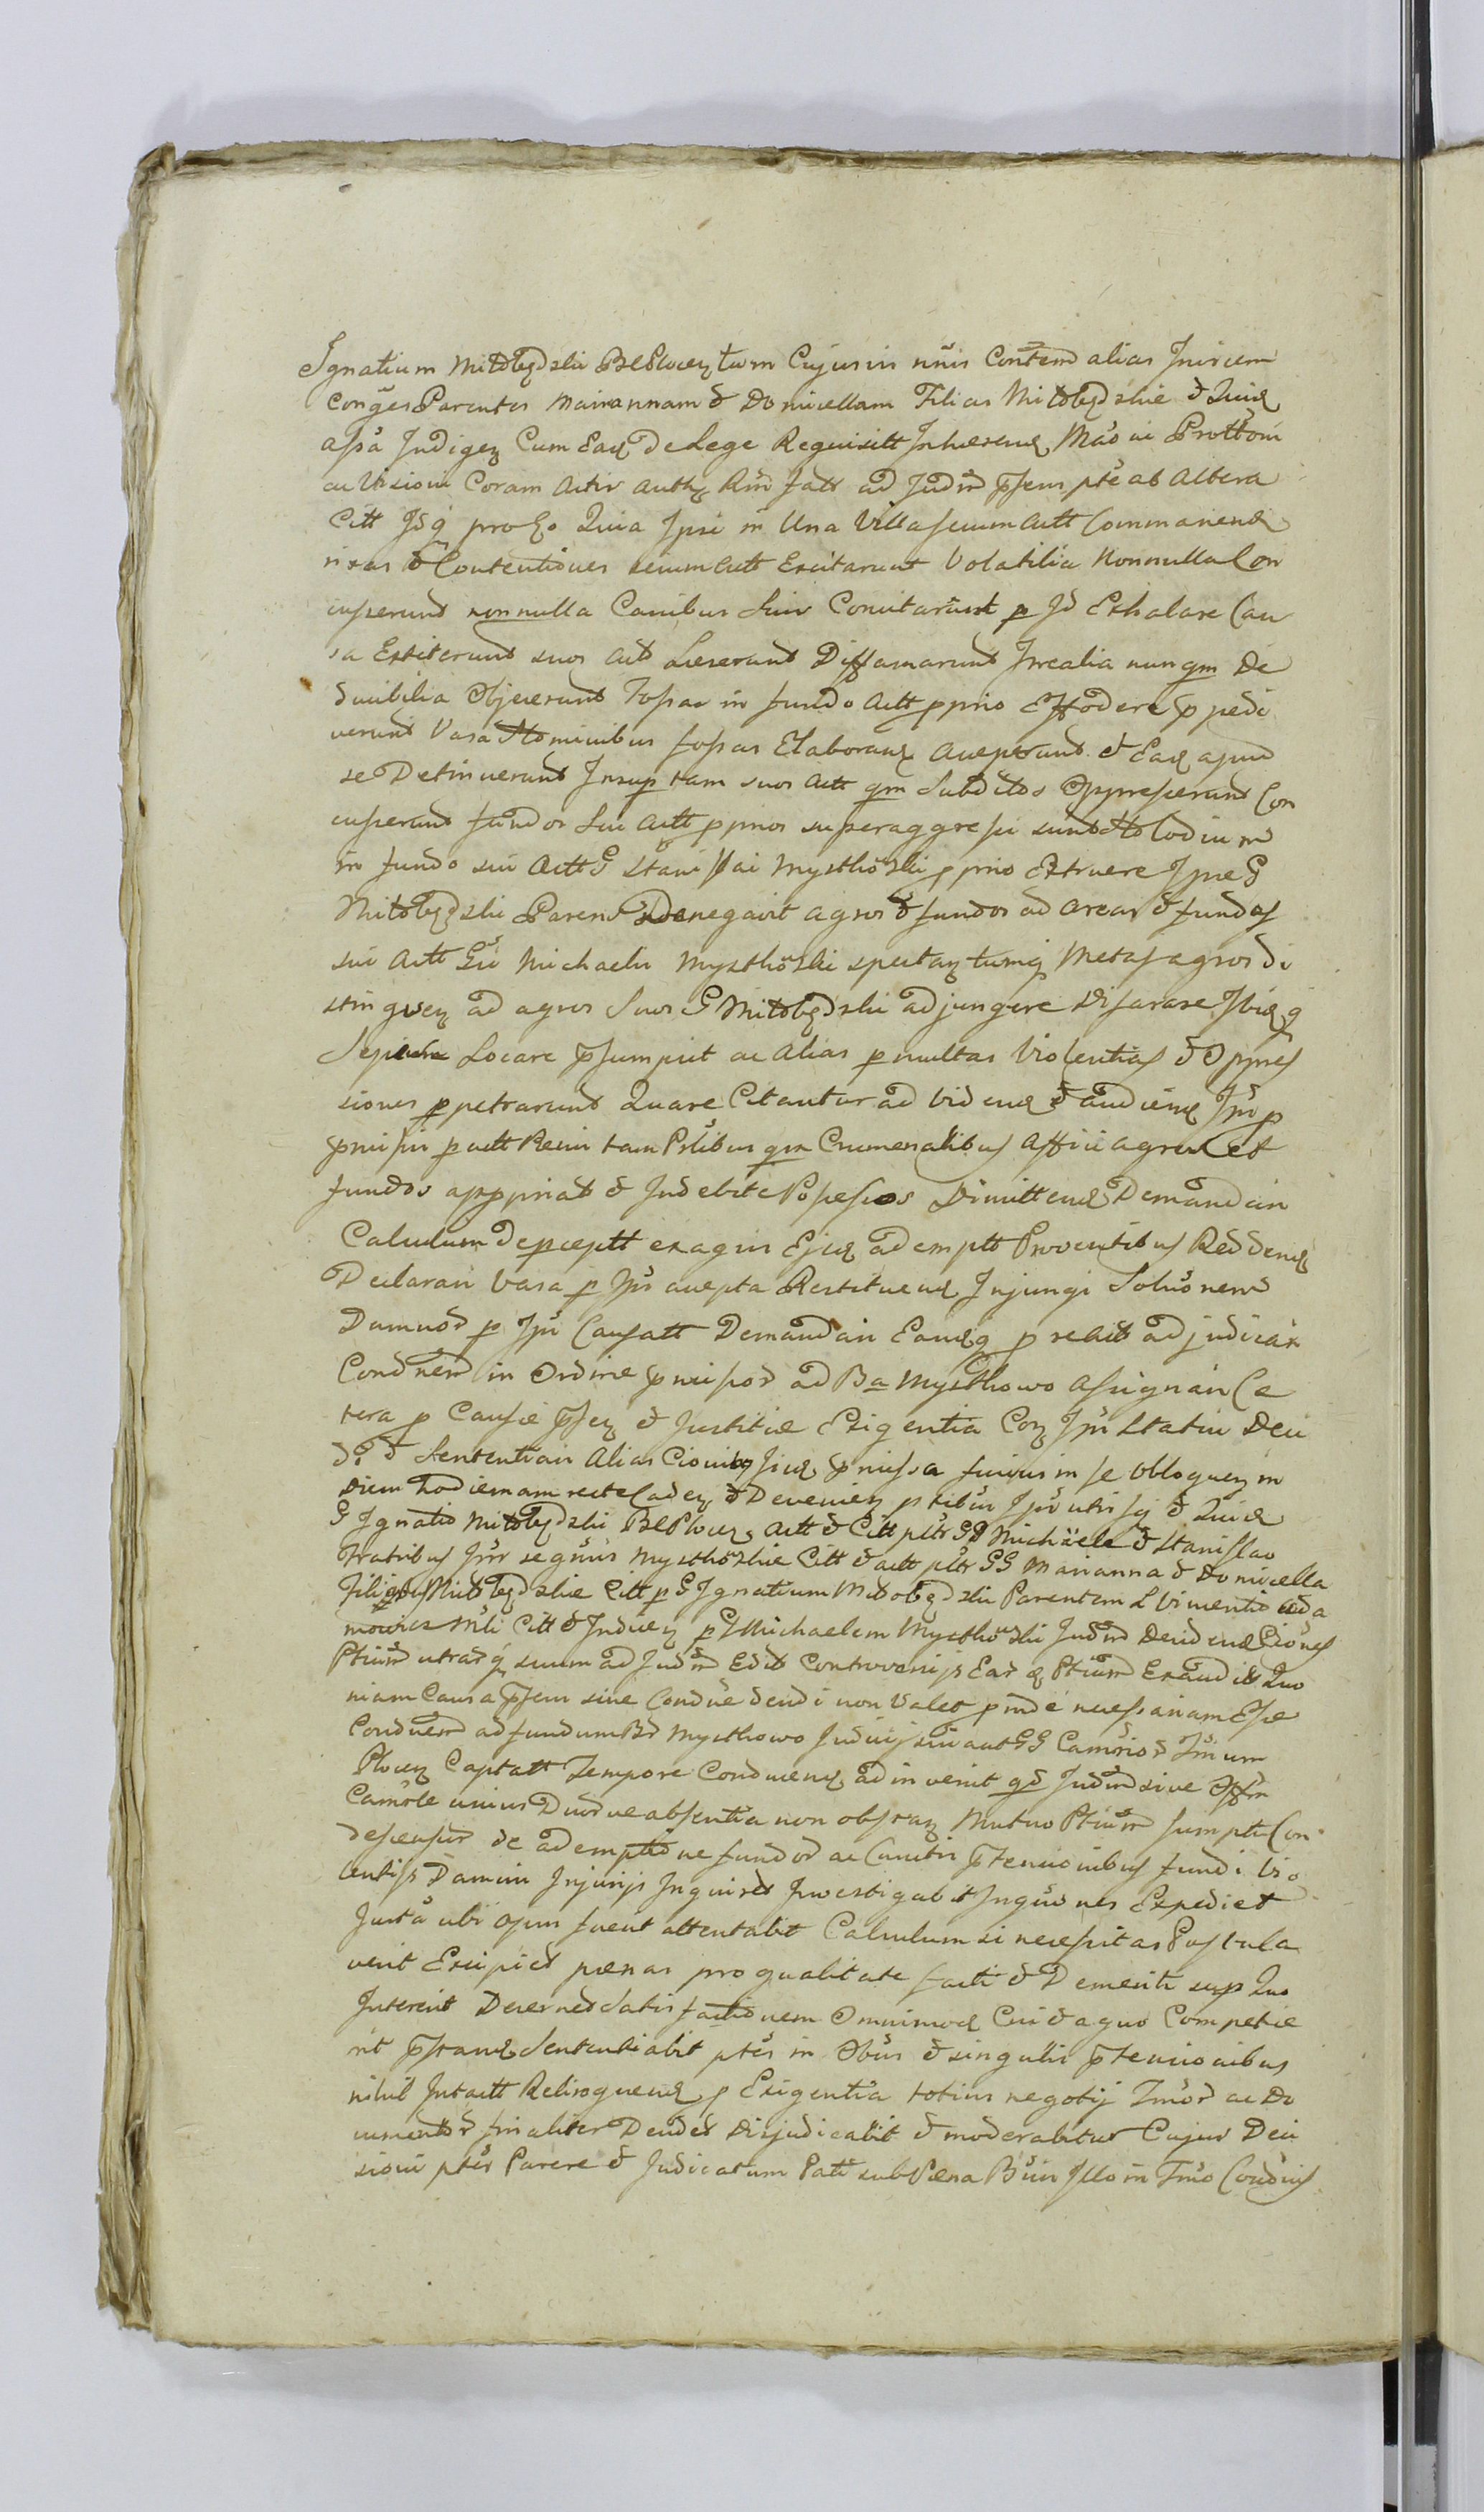 Ignatium Mitobędzkii BCPlocen tum Cujusvis nnis Contem alias Invicem
Conges Parentes Mariannam & Domicellam Filias Mitobędzkie & Quid
assa Indigen Cum Ead de Lege Requisitt Inhaerend Mao ac Prottom
ac Visioni Coram Actis Authen Rm fatt ad Judm psens pte ab Altera
Citt Idq pro eo Quia Ipsi in Una Villa secum Actt Commanend
rixas & Contentiones secum Actt Excitarunt Volatilia Nonnulla Con
cusserunt nonnulla Canibus Suis Concitarunt p Id Exhalare Cau
sa Extiterunt suos Act Laeserunt Diffamarunt Irrealia nunqm De
ducibilia Objecerunt Fossas in fundo Actt pprio Effodere ppedi
verunt Vasa Hominibus fossas Elaboran Acceperunt & Ead apud
se Detinuerunt Insup tam suos Actt qm Subditos Oppresserunt Con
cusserunt fundos Sui Actt pprios superaggressi sunt Holodium
in fundo sui Actt G Stanislai Mysthoski pprio Extruere Ipse G
Mitobędzkii Parens Denegavit agros & fundos ad areas & fundos
sui Actt Gsi Michaelis Mysthoski spectan tumq Metas agros di
stinguen ad agros Suos G Mitobędzkii adjungere Disarare Ibidq
Sepes Locare psumpsit ac Alias p multas Violentias & Oppres
siones ppetrarunt Quare Citantur ad Vidend & audiend Ipsos p
pmissis p actt Reum tam Pslibus qm Criminalibus Affici agros et
fundos appriat & Indebite Possessos Dimittend Demandari
Calculum de pceptt ex agris Ejusd ademptt Proventibus Reddend
Declarari Vasa p Ipsos accepta Restituend Injungi Soluonem
Damnor p Ipsos Causatt Demandari Eandq p re Act adjudicari
Condnem in Ordine pmissor ad Ba Mysthowo Assignari Ce
tera p Causae psen & Justitiae Exigentia Con Ipsos Statui Deci
di & Sententiari Alias Cionibus Quid pmissa fusius in se obloquen in
Diem Hodiernam recte Caden & Devenien ptibus Ipsis utrisq & Quid
G Ignatio Mitobędzkii BCPlocen Actt & Citt pltr GG Michaele & Stanislao
Fratribus Inr se gnis Mysthoskie Citt & actt pltr GG Marianna & Domicella
Filiabus Mitobędzkie Citt p G Ignatium Mitobędzkii Parentem & Vincentio Ada
mowicz Mli Citt & Inducen p G Michaelem Mysthoski Judm Decidend Ciones
Ptium utrarq suum ad Judm Edit Controversijs Ear & Ptium Exaudit Quo
niam Causa psens sine Condne decidi non Valet p inde necessariam Esse
Condnem ad fundum Br Mysthowo Judicij sui aut GG Camrior Trium
Plocen Captatt Tempore Conducend adinvenit qd Judm sive Offm
Camrle unius Duorve absentia non obstan Mutuo Ptium sumptu Con
descensur de ademptione fundor ac Cunctis ptensionibus fundi Vio
lentijs Damni Injurijs Inquiret Investigabit Inquones Expediet
Jurta ubi Opus fuerit attentabit Calculum si necessitas Postula
verit Excipiet paenas pro qualitate facti & Demeriti sup Quo
Intererit Decernet satisfactionem Omnimod Cui & a quo Competie
rit pstand Sententiabit ptes in Obus & singulis ptensionibus
nihil Intactt Relinquend p Exigentia totius negotij Juor ac Do
cumentor finaliter Decidet Disjudicabit & moderabitur Cujus Deci
sioni ptes Parere & Judicatum Pati sub Paena Bnis Illo in Trio Conduis